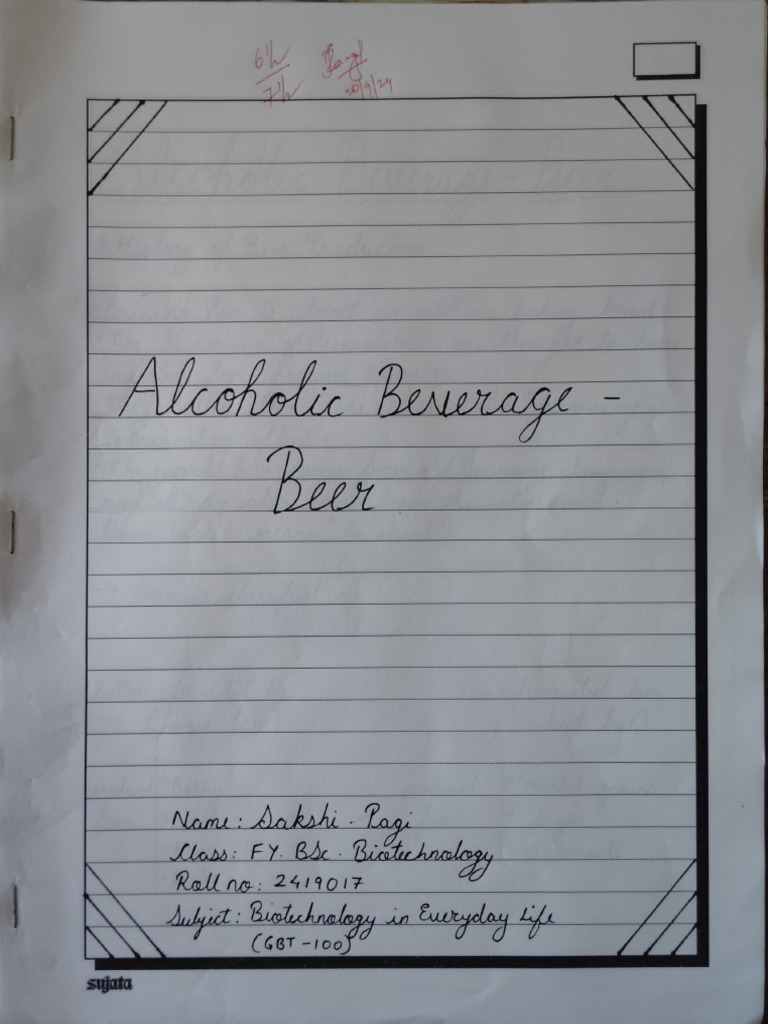 6½
7½
20/9/24
Alcoholic Beverage -
Beer
Name: Sakshi . Pagi
Class: FY. BSc . Biotechnology
Roll no: 2419017
Subject: Biotechnology in Everyday Life
(GBT-100)
sujata